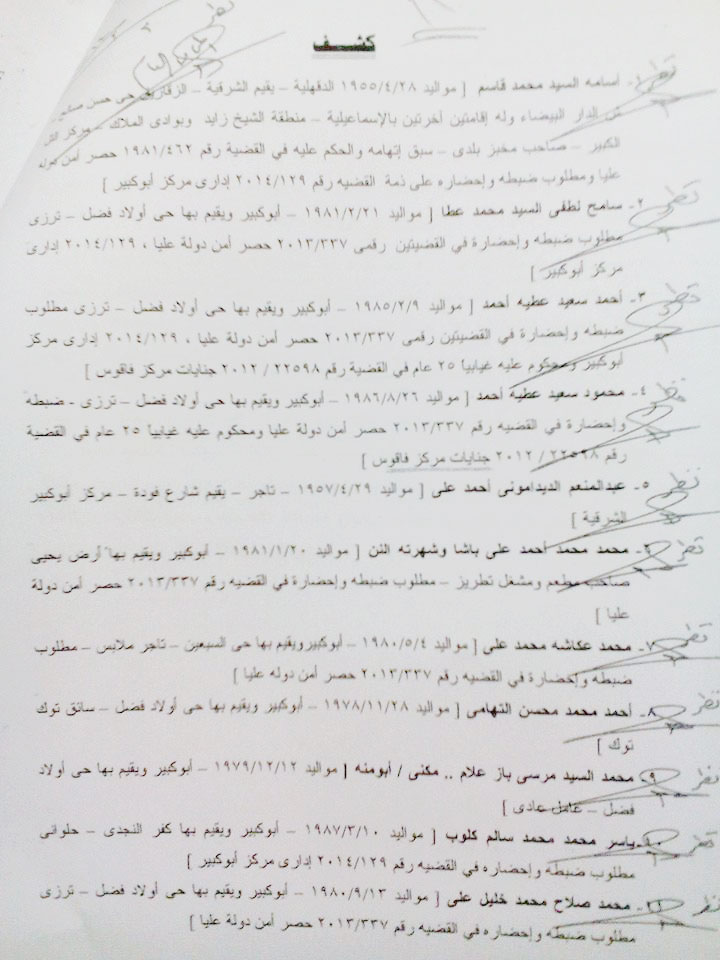 كشف
١- أسامه السيد محمد قاسم [ مواليد ١٩٥٥/٤/٢٨ الدقهلية – يقيم الشرقية – الزقازيق حى حسن صالح –
ش الدار البيضاء وله إقامتين أخرتين بالإسماعيلية – منطقة الشيخ زايد وبوادى الملاك – مركز التل
الكبير – صاحب مخبز بلدى – سبق إتهامه والحكم عليه في القضية رقم ١٩٨١/٤٦٢ حصر أمن دولة
عليا ومطلوب ضبطه وإحضاره على ذمة القضيه رقم ٢٠١٤/١٢٩ إدارى مركز أبوكبير ]
٢- سامح لطفى السيد محمد عطا [ مواليد ١٩٨١/٢/٢١ – أبوكبير ويقيم بها حى أولاد فضل – ترزى
مطلوب ضبطه وإحضارة في القضيتين رقمى ٢٠١٣/٣٣٧ حصر أمن دولة عليا ، ٢٠١٤/١٢٩ إدارى
مركز أبوكبير ]
٣- أحمد سعيد عطيه أحمد [ مواليد ١٩٨٥/٢/٩ – أبوكبير ويقيم بها حى أولاد فضل – ترزى مطلوب
ضبطه وإحضارة في القضيتين رقمى ٢٠١٣/٣٣٧ حصر أمن دولة عليا ، ٢٠١٤/١٢٩ إدارى مركز
أبوكبير ومحكوم عليه غيابياً ٢٥ عام في القضية رقم ٢٢٥٩٨ / ٢٠١٢ جنايات مركز فاقوس ]
٤- محمود سعيد عطيه أحمد [ مواليد ١٩٨٦/٨/٢٦ – أبوكبير ويقيم بها حى أولاد فضل – ترزى - ضبطة
وإحضارة في القضيه رقم ٢٠١٣/٣٣٧ حصر أمن دولة عليا ومحكوم عليه غيابياً ٢٥ عام في القضية
رقم ٢٢٥٩٨ / ٢٠١٢ جنايات مركز فاقوس ]
٥- عبدالمنعم الديدامونى أحمد على [ مواليد ١٩٥٧/٤/٢٩ – تاجر – يقيم شارع فودة – مركز أبوكبير
الشرقية ]
٦- محمد محمد أحمد على باشا وشهرته النن [ مواليد ١٩٨١/١/٢٠ – أبوكبير ويقيم بها أرض يحيى
صاحب مطعم ومشغل تطريز – مطلوب ضبطه وإحضارة في القضيه رقم ٢٠١٣/٣٣٧ حصر أمن دولة
عليا ]
٧- محمد عكاشه محمد على [ مواليد ١٩٨٠/٥/٤ – أبوكبيرويقيم بها حى السبعين – تاجر ملابس – مطلوب
ضبطه وإحضارة في القضيه رقم ٢٠١٣/٣٣٧ حصر أمن دوله عليا ]
٨- أحمد محمد محسن التهامى [ مواليد ١٩٧٨/١١/٢٨ – أبوكبير ويقيم بها حى أولاد فضل – سائق توك
توك ]
٩- محمد السيد مرسى باز علام .. مكنى / أبومنه [ مواليد ١٩٧٩/١٢/١٢ – أبوكبير ويقيم بها حى أولاد
فضل – عامل عادى ]
١٠- ياسر محمد محمد سالم كلوب [ مواليد ١٩٨٧/٣/١٠ – أبوكبير ويقيم بها كفر النجدى – حلوانى
مطلوب ضبطه وإحضاره في القضيه رقم ٢٠١٤/١٢٩ إدارى مركز أبوكبير ]
١١- محمد صلاح محمد خليل على [ مواليد ١٩٨٠/٩/١٣ – أبوكبير ويقيم بها حى أولاد فضل – ترزى
مطلوب ضبطه وإحضاره في القضيه رقم ٢٠١٣/٣٣٧ حصر أمن دولة عليا ]